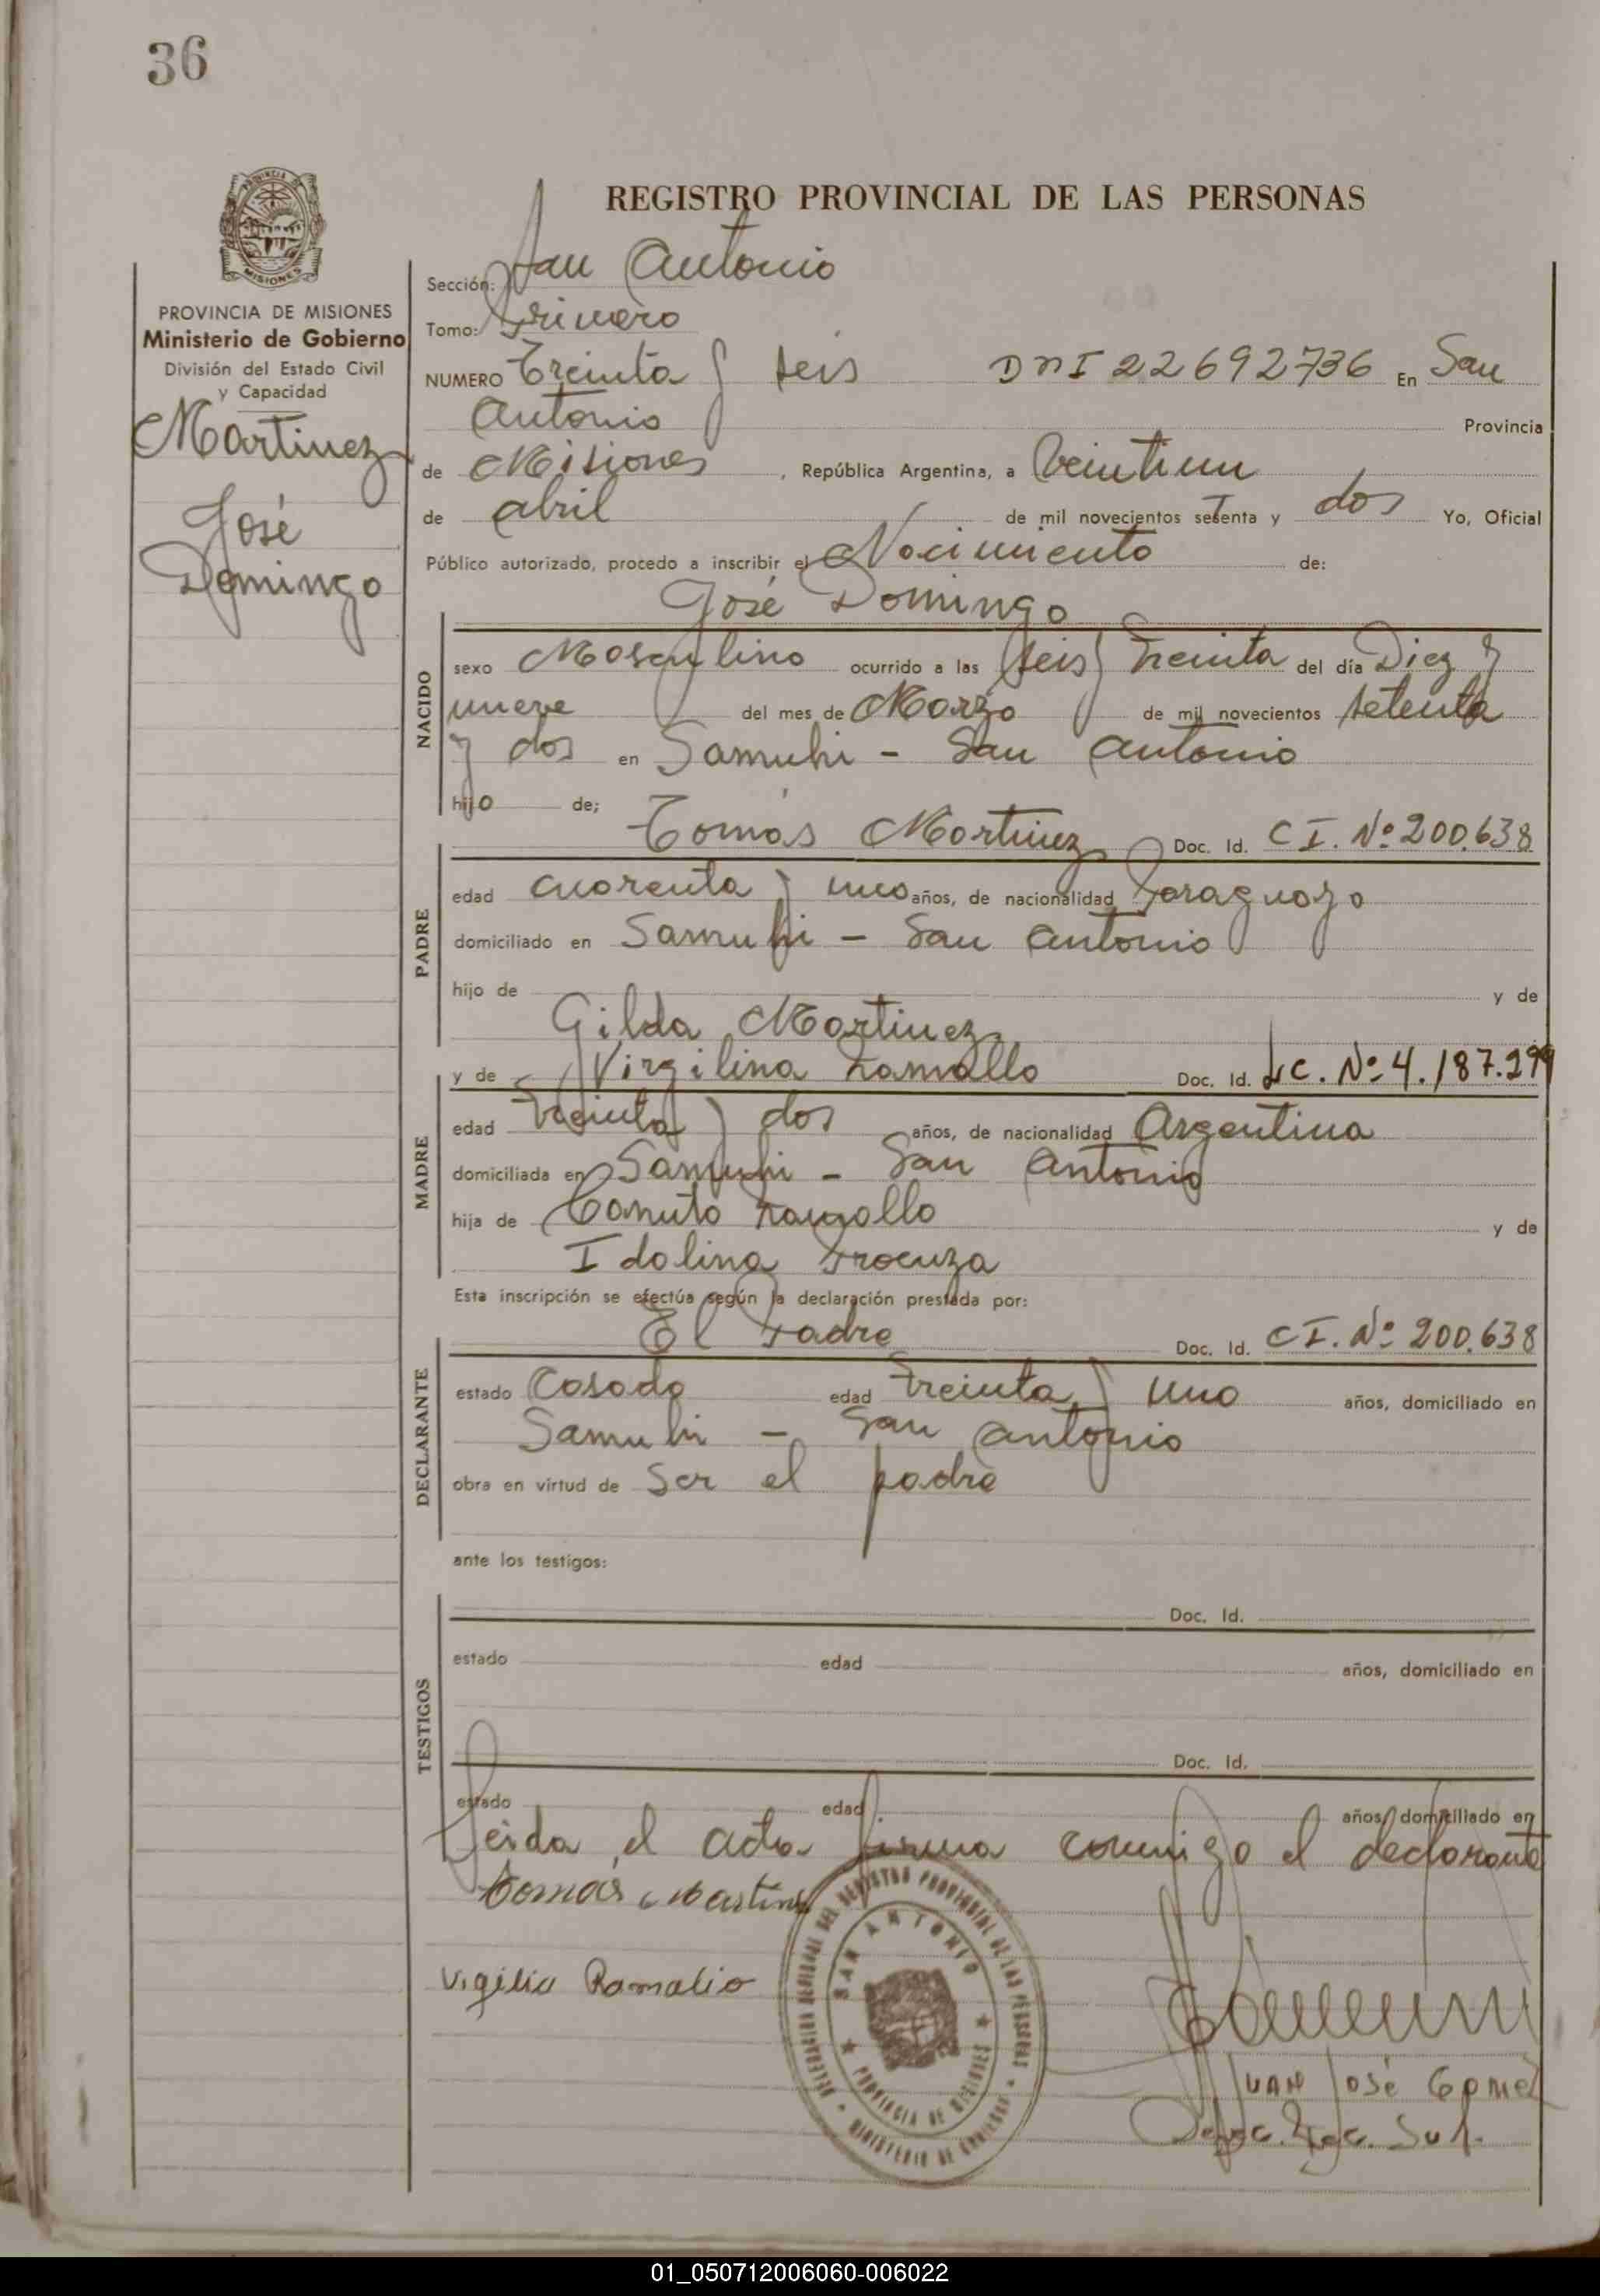 36
REGISTRO PROVINCIAL DE LAS PERSONAS
MISIONES
PROVINCIA DE MISIONES
Ministerio de Gobierno
División del Estado Civil
y Capacidad
Martinez
José
Domingo
Sección: San Antonio
Tomo: Primero
NUMERO Treinta y seis DNI 22692736 En San
Antonio Provincia
de Misiones , República Argentina, a Veintiun
de abril de mil novecientos setenta y dos Yo, Oficial
Público autorizado, procedo a inscribir el Nacimiento de:
José Domingo
NACIDO
sexo Masculino ocurrido a las seis y Treinta del día Diez y
nueve del mes de Marzo de mil novecientos setenta
y dos en Samuhi - San Antonio
hijo de;
Tomás Martinez Doc. Id. C I. Nº 200.638
PADRE
edad cuarenta y uno años, de nacionalidad Paraguayo
domiciliado en Samuhi - San Antonio
hijo de y de
Gilda Martinez
y de Virgilina Ramallo Doc. Id. L.C. Nº 4.187.299
MADRE
edad Treinta y dos años, de nacionalidad Argentina
domiciliada en Samuhi - San Antonio
hija de Canuto Ramallo y de
Idolina
Esta inscripción se efectúa según la declaración prestada por:
El Padre Doc. Id. C I. Nº 200.638
DECLARANTE
estado Casado edad Treinta y uno años, domiciliado en
Samuhi - San Antonio
obra en virtud de Ser el padre
ante los testigos:
TESTIGOS
Doc. Id.
estado edad años, domiciliado en
Doc. Id.
estado edad años, domiciliado en
Leida el acta firma conmigo el declarante
Tomás Martinez
Vigilio Ramalio
SAN ANTONIO
PROVINCIA DE MISIONES
MINISTERIO DE GOBIERNO
JUAN José Gomez
01_050712006060-006022